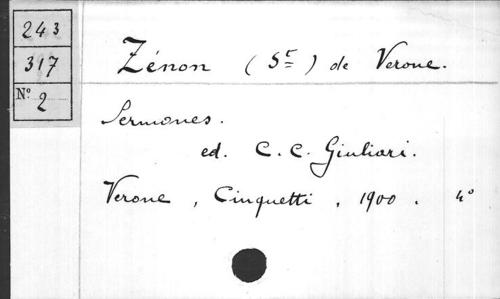 243
317
N° 2
Zénon (St) de Verone.
Sermones.
ed. C. C. Giuliari.
Verone, Cinquetti, 1900. 4°